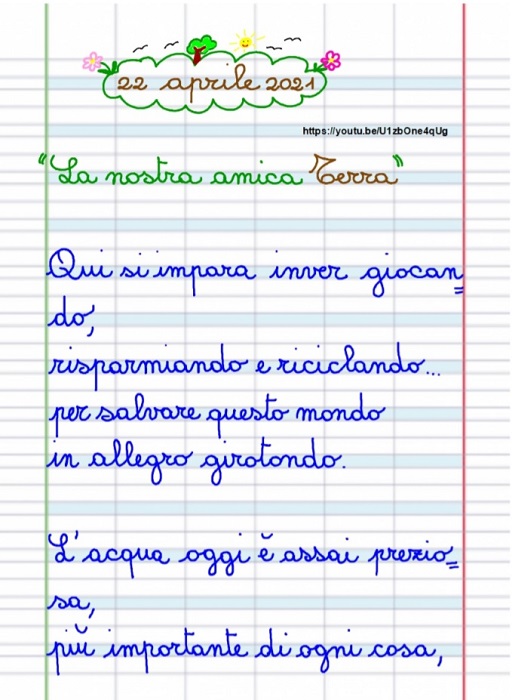 22 aprile 2021
https://youtu.be/U1zbOne4qUg
"La nostra amica Terra"
Qui si impara inver giocan=
do,
risparmiando e riciclando...
per salvare questo mondo
in allegro girotondo.
L'acqua oggi è assai prezio=
sa,
più importante di ogni cosa,